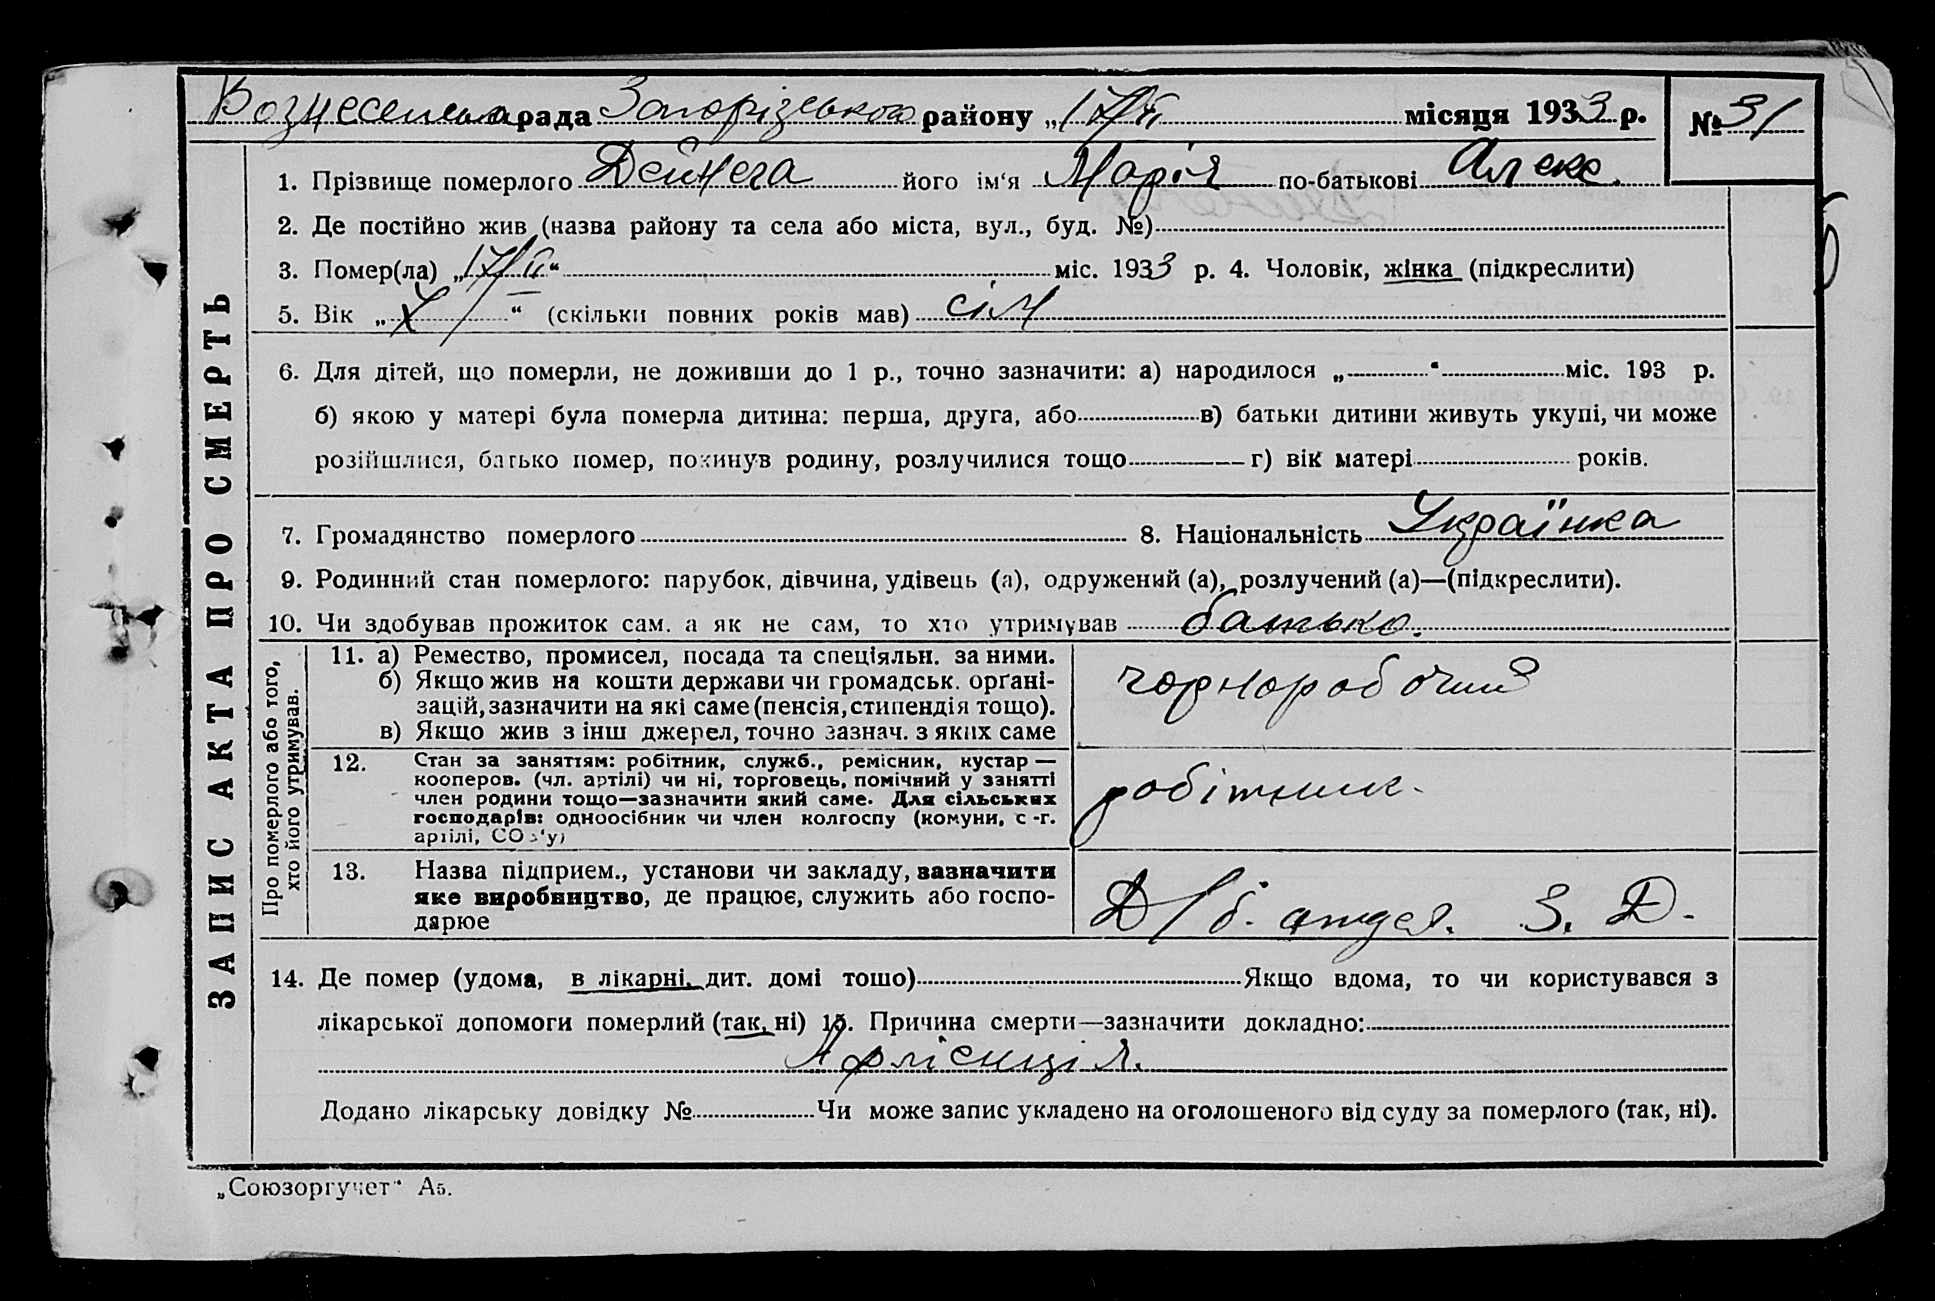 Вознесенська рада Запорізького району „17/II місяця 1933 р. № 31
ЗАПИС АКТА ПРО СМЕРТЬ
1. Прізвище померлого Дейнега його ім‘я Марія по-батькові Алекс.
2. Де постійно жив (назва району та села або міста, вул., буд. №)
3. Помер(ла) „17/II“ міс. 1933 р. 4. Чоловік, жінка (підкреслити)
5. Вік „ “ (скільки повних років мав) сім
6. Для дітей, що померли, не доживши до 1 р., точно зазначити: а) народилося „ “ міс. 193 р.
б) якою у матері була померла дитина: перша, друга, або в) батьки дитини живуть укупі, чи може
розійшлися, батько помер, покинув родину, розлучилися тощо г) вік матері років.
7. Громадянство померлого 8. Національність Українка
9. Родинний стан померлого: парубок, дівчина, удівець (а), одружений (а), розлучений (а)—(підкреслити).
10. Чи здобував прожиток сам. а як не сам, то хто утримував батько.
Про померлого або того,
хто його утримував.
11. а) Ремество, промисел, посада та спеціяльн. за ними.
б) Якщо жив на кошти держави чи громадськ. орґані-
зацій, зазначити на які саме (пенсія, стипендія тощо).
в) Якщо жив з інш джерел, точно зазнач. з яких саме
чорноробочий
12. Стан за заняттям: робітник, служб., ремісник, кустар —
кооперов. (чл. артілі) чи ні, торговець, помічний у занятті
член родини тощо—зазначити який саме. Для сільських
господарів: одноосібник чи член колгоспу (комуни, с-г.
артілі, СОЗ‘у)
робітник.
13. Назва підприєм., установи чи закладу, зазначити
яке виробництво, де працює, служить або госпо-
дарює
Д/б. отдел. З. Д.
14. Де помер (удома, в лікарні, дит. домі тошо) Якщо вдома, то чи користувався з
лікарської допомоги померлий (так, ні) 15. Причина смерти—зазначити докладно:
Додано лікарську довідку № Чи може запис укладено на оголошеного від суду за померлого (так, ні).
„Союзоргучет“ А5.